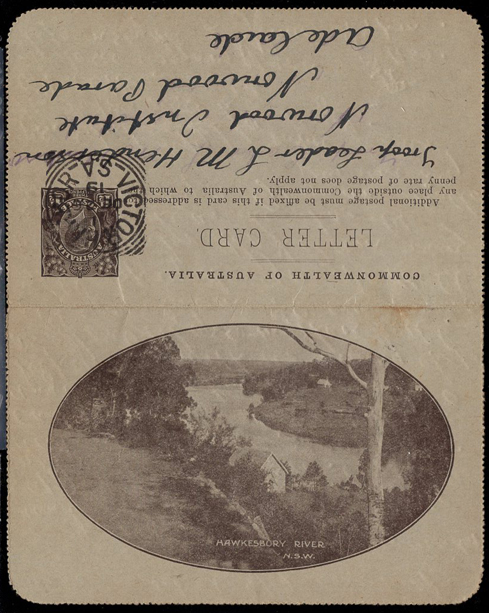 COMMONWEALTH OF AUSTRALIA.
LETTER CARD.
Additional postage must be affixed if this card is addressed to
any place outside the Commonwealth of Australia to which the
penny rate of postage does not apply.
Troop Leader L M Henderson
Norwood Institute
Norwood Parade
Adelaide
VICTOR
S.A
HAWKESBURY RIVER
N.S.W.